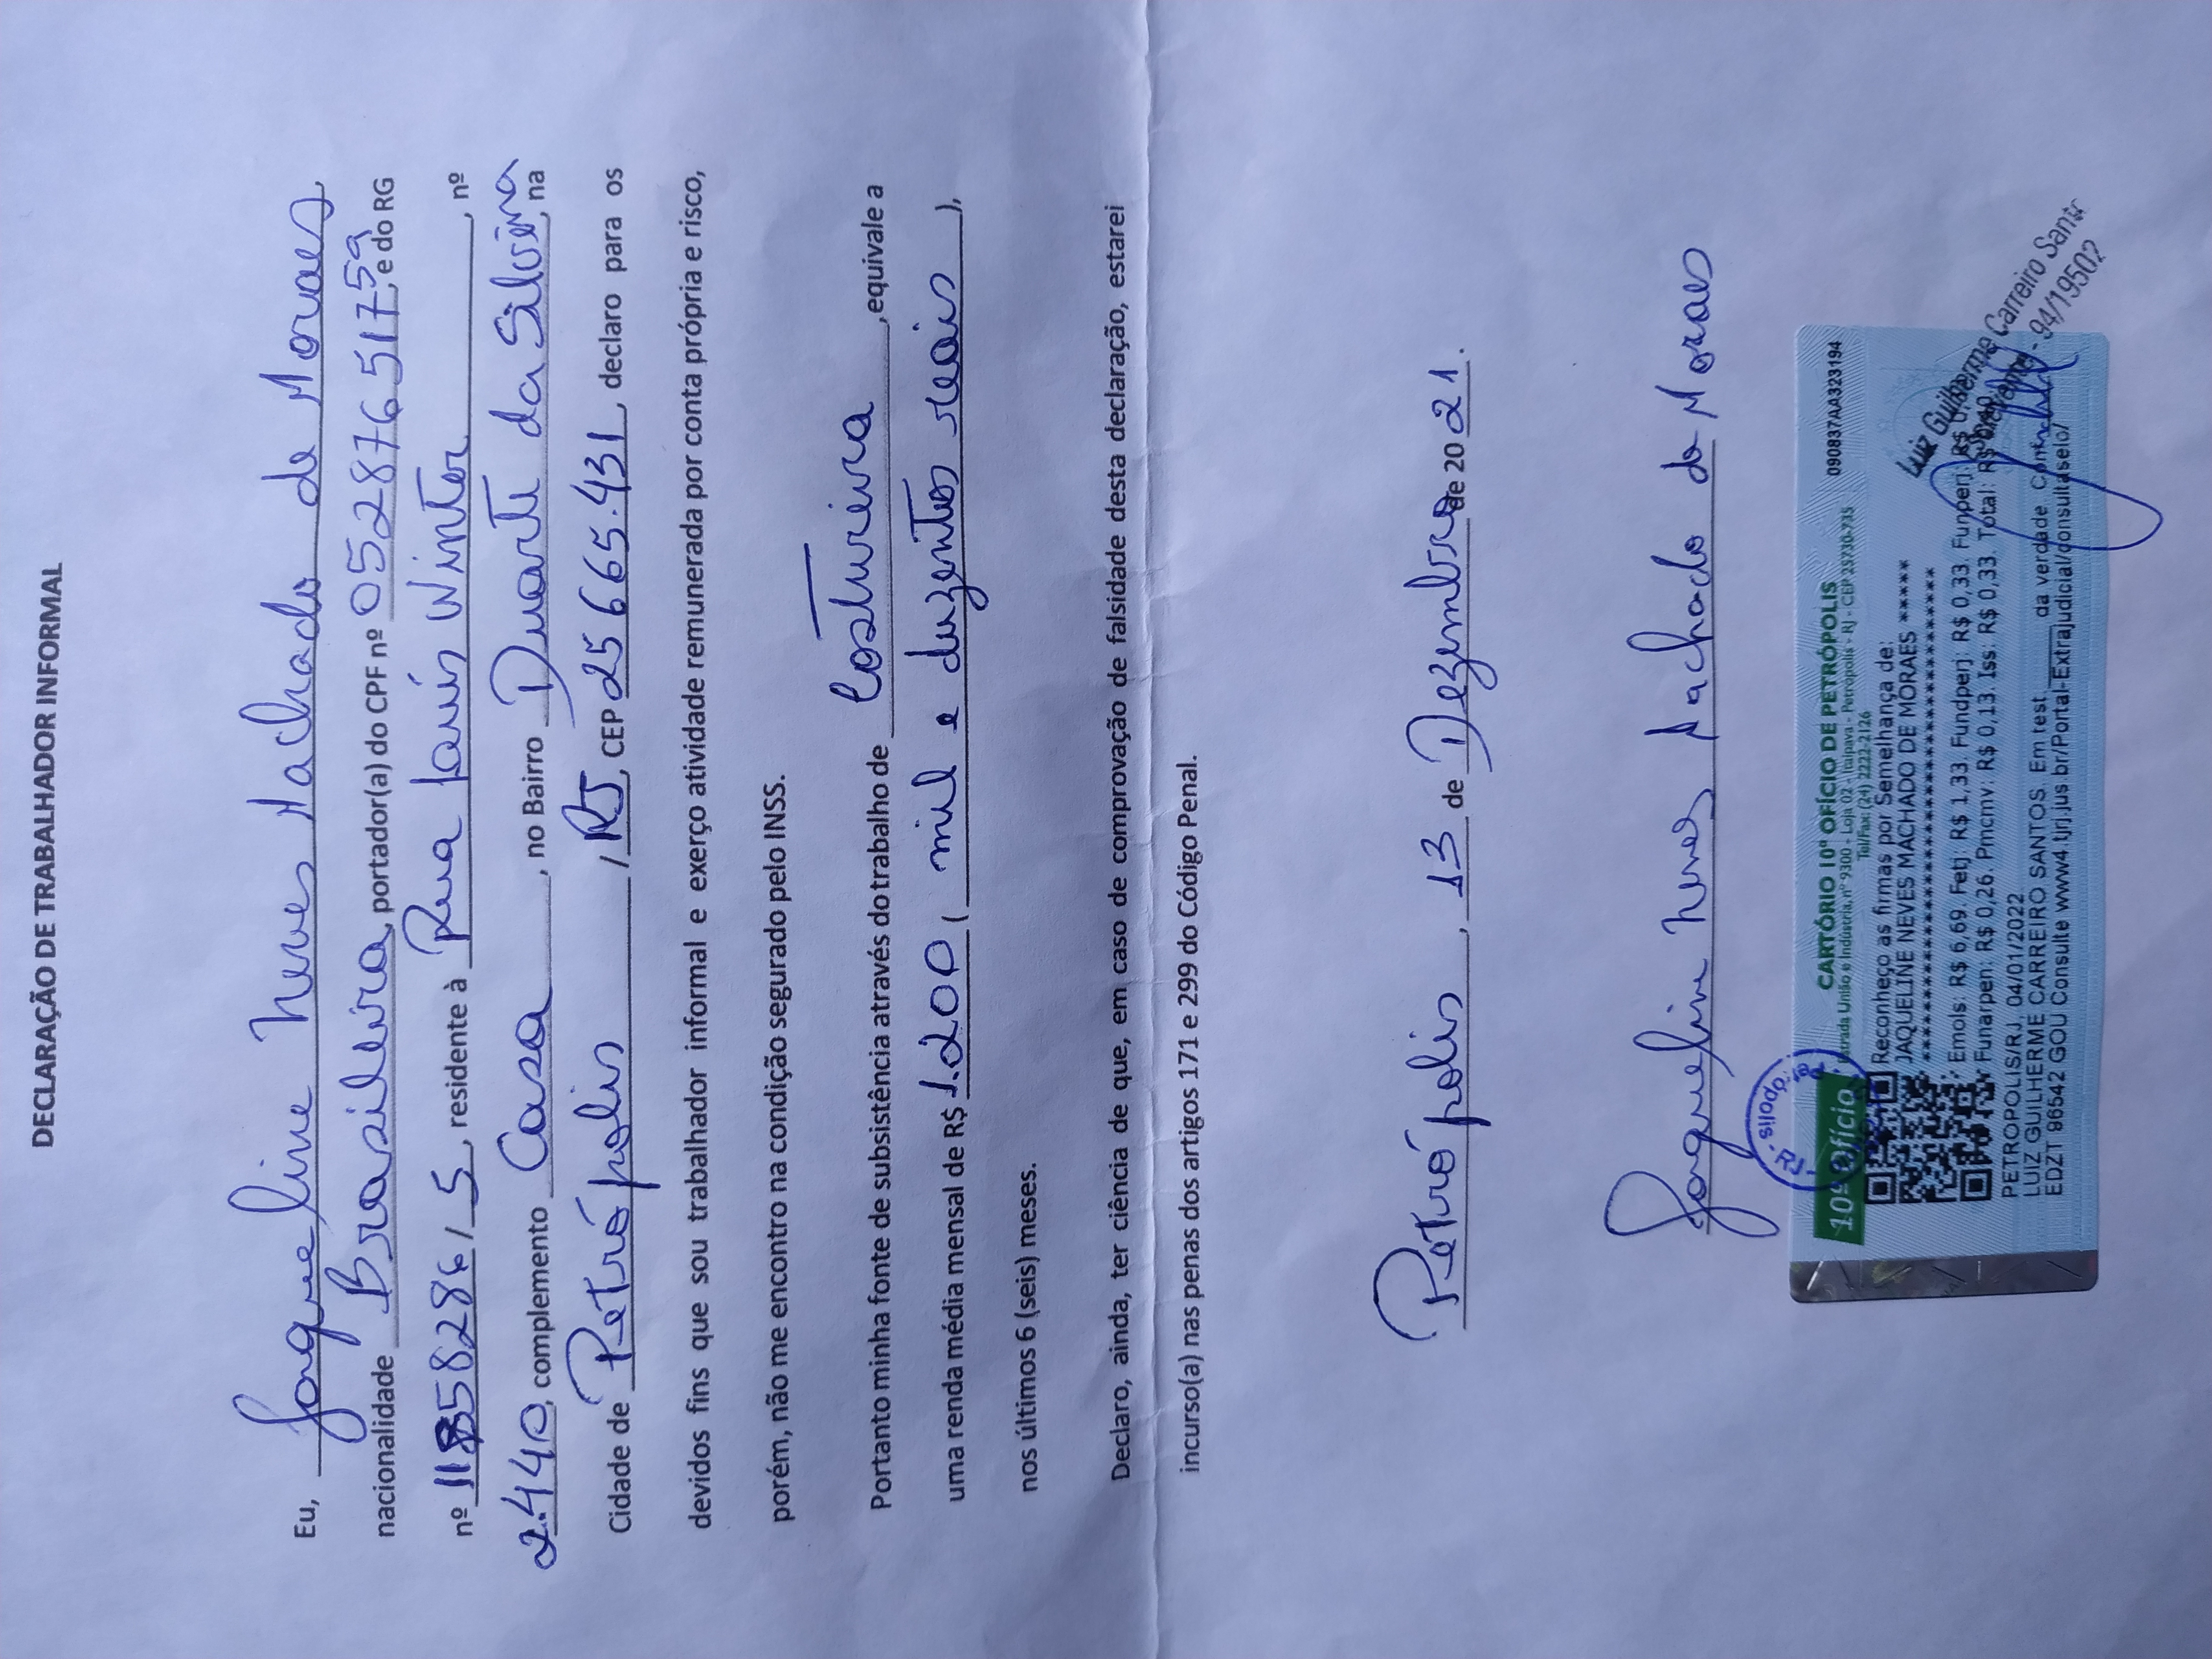 DECLARAÇÃO DE TRABALHADOR INFORMAL
Eu, Jaqueline Neves Machado de Moraes,
nacionalidade Brasileira, portador(a) do CPF nº 052876517 59, e do RG
nº 11858286/5, residente à Rua Louis Winter, nº
2.440, complemento Casa, no Bairro Duarte da Silveira, na
Cidade de Petrópolis / RJ, CEP 25665.431, declaro para os
devidos fins que sou trabalhador informal e exerço atividade remunerada por conta própria e risco,
porém, não me encontro na condição segurado pelo INSS.
Portanto minha fonte de subsistência através do trabalho de Costureira, equivale a
uma renda média mensal de R$ 1.200, ( mil e duzentos reais ),
nos últimos 6 (seis) meses.
Declaro, ainda, ter ciência de que, em caso de comprovação de falsidade desta declaração, estarei
incurso(a) nas penas dos artigos 171 e 299 do Código Penal.
Petrópolis, 13 de Dezembro de 2021.
Jaqueline Neves Machado de Moraes
10º Ofício
Petrópolis - RJ
CARTÓRIO 10º OFÍCIO DE PETRÓPOLIS
090837AA323194
Estrada União e Industria, nº 9300 - Loja 02 - Itaipava - Petrópolis - RJ - CEP 25730-735
Tel/Fax: (24) 2222-2126
Reconheço as firmas por Semelhança de:
JAQUELINE NEVES MACHADO DE MORAES *****
Emols: R$ 6,69. Fetj: R$ 1,33 Fundperj: R$ 0,33. Funperj: R$
Funarpen: R$ 0,26. Pmcmv: R$ 0,13. Iss: R$ 0,33. Total: R$
PETROPOLIS/RJ, 04/01/2022
LUIZ GUILHERME CARREIRO SANTOS. Em test ____ da verdade
EDZT 86542 GOU Consulte www4.tjrj.jus.br/Portal-Extrajudicial/consultaselo/
Luiz Guilherme Carreiro Santos
Escrevente - 94/19502